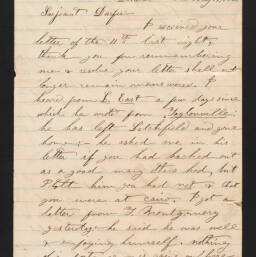 Serjeant Durfee
I received your
letter of the 11th last night,
thank you for remembering
me & resolve your letter shall not
longer remain unanswered. I
heard from L. East a few days since
which he wrote from Taylorville
he has left Litchfield and gone
home; he asked me in his
letter if you had backed out
as a good many others had, but
I tell him you had not & that
you were at Cairo. I got a
letter from J. Montgomery
yesterday he said he was well
& enjoying himself. nothing